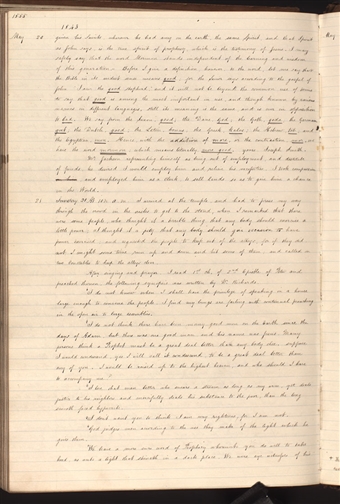 1843
1843
May
20
gives his Saints, whenever he had any in the world, the same Spirit, and that Spirit
as John says, is the true spirit of prophecy, which is the testimony of Jesus, I may
safely say that the word Mormon stands independent of the learning and wisdom
of this generation. Before I give a definition, however, to the word, let me say that
the Bible in its widest sense means good; for the Savior says according to the gospel of
John "I am the good shepherd;" and it will not be beyond the common use of terms
to say that good is among the most important in use, and though known by various
names in different languages, still its meaning is the same, and is ever in opposition
to bad. We say from the Saxon, good; the Dane, god; the Goth, goda; the German,
gut; the Dutch, goed; the Latin, bonus; the Greek, kalos; the Hebrew, tob; and
the Egyptian, mon. Hence, with the addition of more, or the contraction, mor, we
have the word mormon; which means literally, more good. Yours, Joseph Smith."
Mr. Jackson representing himself as being out of employment, and destitute
of funds, he desired I would employ him and relieve his necessities. I took compassion
and employed him as a clerk to sell lands so as to give him a chance
in the World.
21
Sunday
I arrived at the Temple, and had to press my way
through the crowd in the aisles to get to the stand, when I remarked that there
were some people who thought it a terrible thing that any body should exercise a
little power; I thought it a pity that any body should give occasion to have
power exercised, and requested the people to keep out of the alleys, for if they did
not, I might some time run up and down and hit some of them, and called on
to keep the alleys clear.
After singing and prayer, I read 1st ch. of 2nd Epistle of Peter and
preached thereon, the following synopsis was written by Dr. Richards.
"I do not know when I shall have the privilege of speaking in a house
large enough to convene the people. I find my lungs are failing with continual preaching
in the open air to large assemblies.
"I do not think there have been many good men on the earth since the
days of Adam; but there was one good man and his name was Jesus. Many
persons think a Prophet must be a great deal better than any body else. Suppose
I would condescend, yes, I will call it condescend, to be a great deal better than
any of you, I would be raised up to the highest heaven; and who should I have
to accompany me?
"I love that man better who swears a stream as long as my arm, yet deals
justice to his neighbors and mercifully deals his substance to the poor, than the long
smooth faced hypocrite.
"I don't want you to think I am very righteous, for I am not.
"God judges men according to the use they make of the light which he
gives them.
"We have a more sure word of Prophecy whereunto you do well to take
heed, as unto a light that shineth in a dark place. We were eye witnesses of his
May